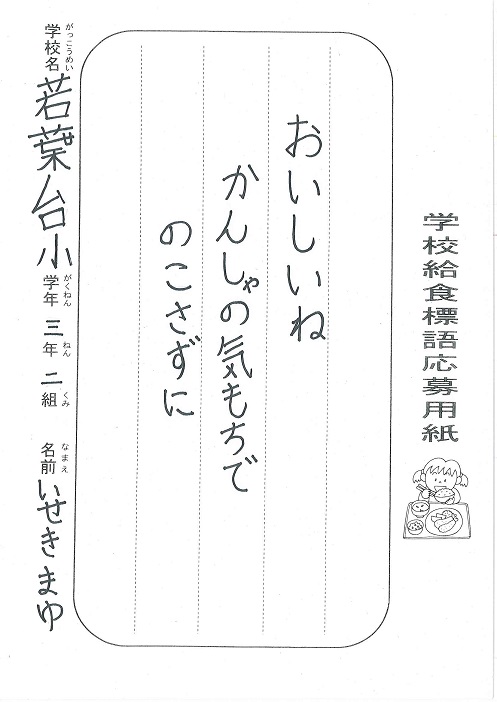 学校給食標語応募用紙
おいしいね
かんしゃの気もちで
のこさずに
学校名 がっこうめい 若葉台小 学年 がくねん 三年 ねん 二組 くみ 名前 なまえ いせきまゆ